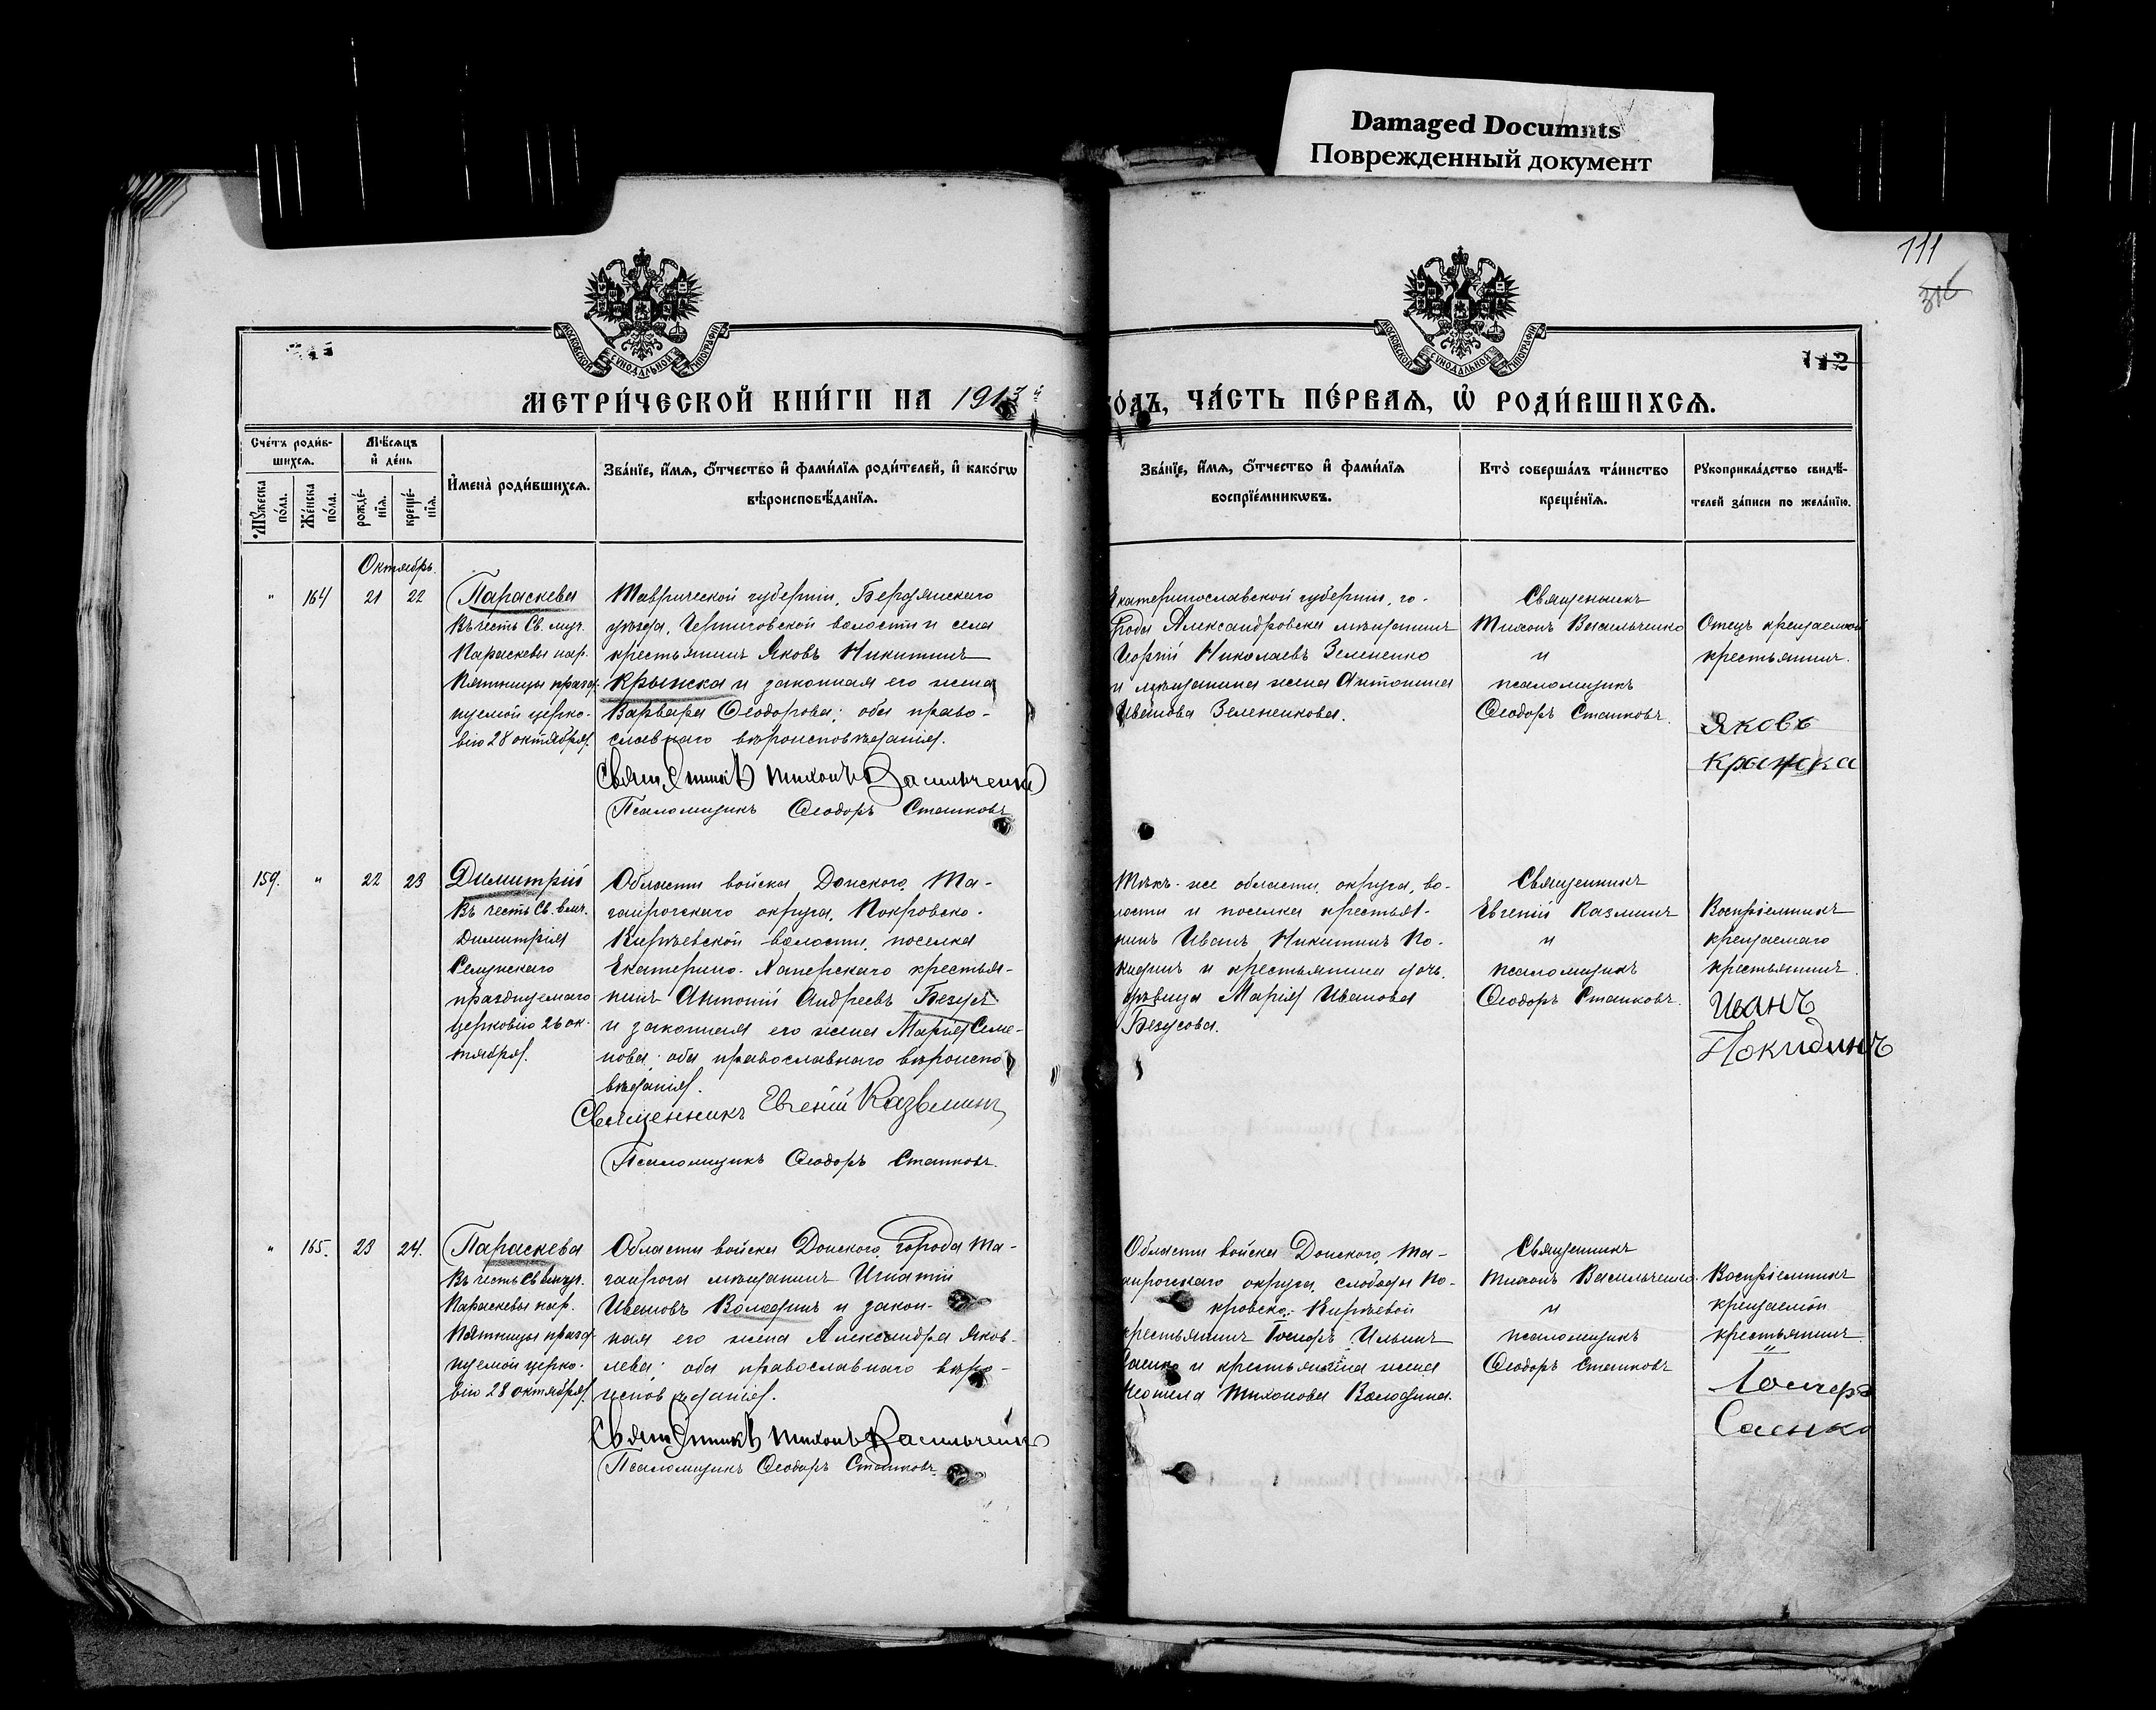 Damaged Documnts
Поврежденный документ
111
МОСКОВСКОЙ СѴНОДАЛЬНОЙ ТИПОГРАФІИ
МОСКОВСКОЙ СѴНОДАЛЬНОЙ ТИПОГРАФІИ
112
МЕТРИ́ЧЕСКОЙ КНИ́ГИ НА 1913 й
ГОДЪ, ЧА́СТЬ ПЕ́РВАЯ, Ѡ҆ РОДИ́ВШИХСЯ.
Сче́тъ роди́в-
шихся.
Мѣ́сяцъ
и҆ де́нь
Мꙋ́жеска
по́ла.
Же́нска
по́ла.
рожде́-
нїя.
креще́-
нїя.
И҆мена̀ роди́вшихся.
Зва́нїе, и҆́мя, ѻ҆́тчество и҆ фами́лїя роди́телей, и҆ како́гѡ
вѣроисповѣ́данїя.
Зва́нїе, и҆́мя, ѻ҆́тчество и҆ фами́лїя
воспрїе́мникѡвъ.
Кто̀ соверша́лъ та́инство
креще́нїя.
Рꙋкоприкла́дство свидѣ́-
телей за́писи по жела́нїю.
Октябрь.
" 164 21 22
Параскева
Въ честь Св. муч.
Параскевы нар.
Пятницы празд-
нуемой церко-
вію 28 октября.
Таврической губерніи, Бердянскаго
уѣзда, Черниговской волости и села
крестьянинъ Яковъ Никитинъ
Крынска и законная его жена
Варвара Ѳеодорова; оба право-
славнаго вѣроисповѣданія.
Священникъ Тихонъ Васильченко
Псаломщикъ Ѳеодоръ Сташковъ
Екатеринославской губерніи, го-
рода Александровска мѣщанинъ
Николаевъ Зелененко
и мѣщанина жена Антонина
Иванова Зелененкова.
Священникъ
Тихонъ Васильченко
и
псаломщикъ
Ѳеодоръ Сташковъ.
Отецъ крещаемой
крестьянинъ.
Яковъ
Крынска
159. " 22 23
Димитрій
Въ честь Св. влмч.
Димитрія
Селунскаго
празднуемаго
церковію 26 ок-
тября.
Области войска Донского, Та-
ганрогскаго округа, Покровско-
Кирѣевской волости, поселка
Екатерино-Хаперскаго крестья-
нинъ Антоній Андреевъ Безусъ
и законная его жена Марія Симе-
нова; оба православнаго вѣроиспо-
вѣданія.
Священникъ Евгеній Казьминъ
Псаломщикъ Ѳеодоръ Сташковъ.
Тѣхъ-же области, округа, во-
лости и поселка крестья-
нинъ Иванъ Никитинъ По-
кидинъ и крестьянина дочь,
дѣвица Марія Иванова
Безусова.
Священникъ
Евгеній Казминъ
и
псаломщикъ
Ѳеодоръ Сташковъ.
Воспріемникъ
крещаемаго
крестьянинъ.
Иванъ
Покидинъ
" 165. 23 24.
Параскева
Въ честь Св. влмуч.
Параскевы нар.
Пятницы празд-
нуемой церко-
вію 28 октября.
Области войска Донского, города Та-
ганрога мѣщанинъ Игнатій
Ивановъ Володинъ и закон-
ная его жена Александра Яков-
лева; оба православнаго вѣро-
исповѣданія.
Священникъ Тихонъ Васильченко
Псаломщикъ Ѳеодоръ Сташковъ.
Области войска Донского, Та-
ганрогскаго округа, слободы По-
кровско-Кирѣевой
крестьянинъ Ильинъ
Саенко и крестьянина жена
Тихонова Володина.
Священникъ
Тихонъ Васильченко.
и
псаломщикъ
Ѳеодоръ Сташковъ
Воспріемникъ
крещаемой
крестьянинъ.
Саенко